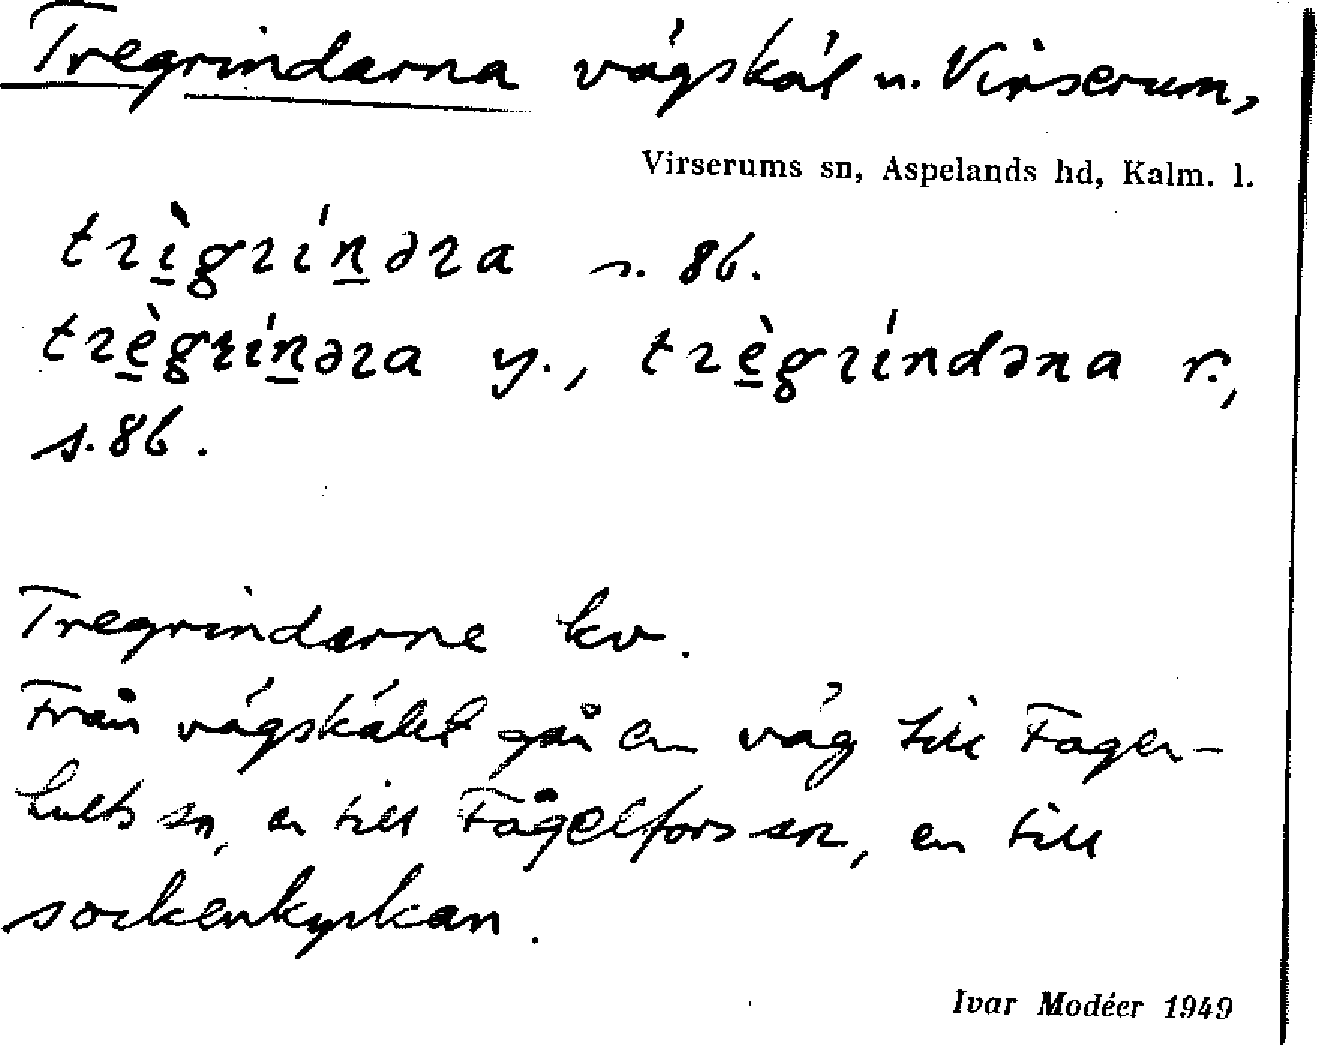 Tregrindarna vägskäl n. Virserum,
Virserums sn, Aspelands hd, Kalm. l.
trìgríṉəra s. 86.
trègríṉəra y., trègríndəna r.,
s. 86.
Tregrindarne kv.
Från vägskälet går en väg till Fager-
hults sn, en till Fågelfors sn, en till
sockenkyrkan.
Ivar Modéer 1949